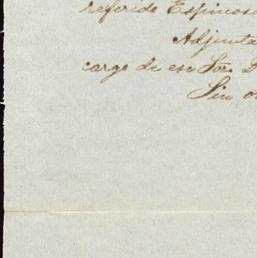 referido Espinosa
Adjunta
cargo de ese Sor. D
Sin o